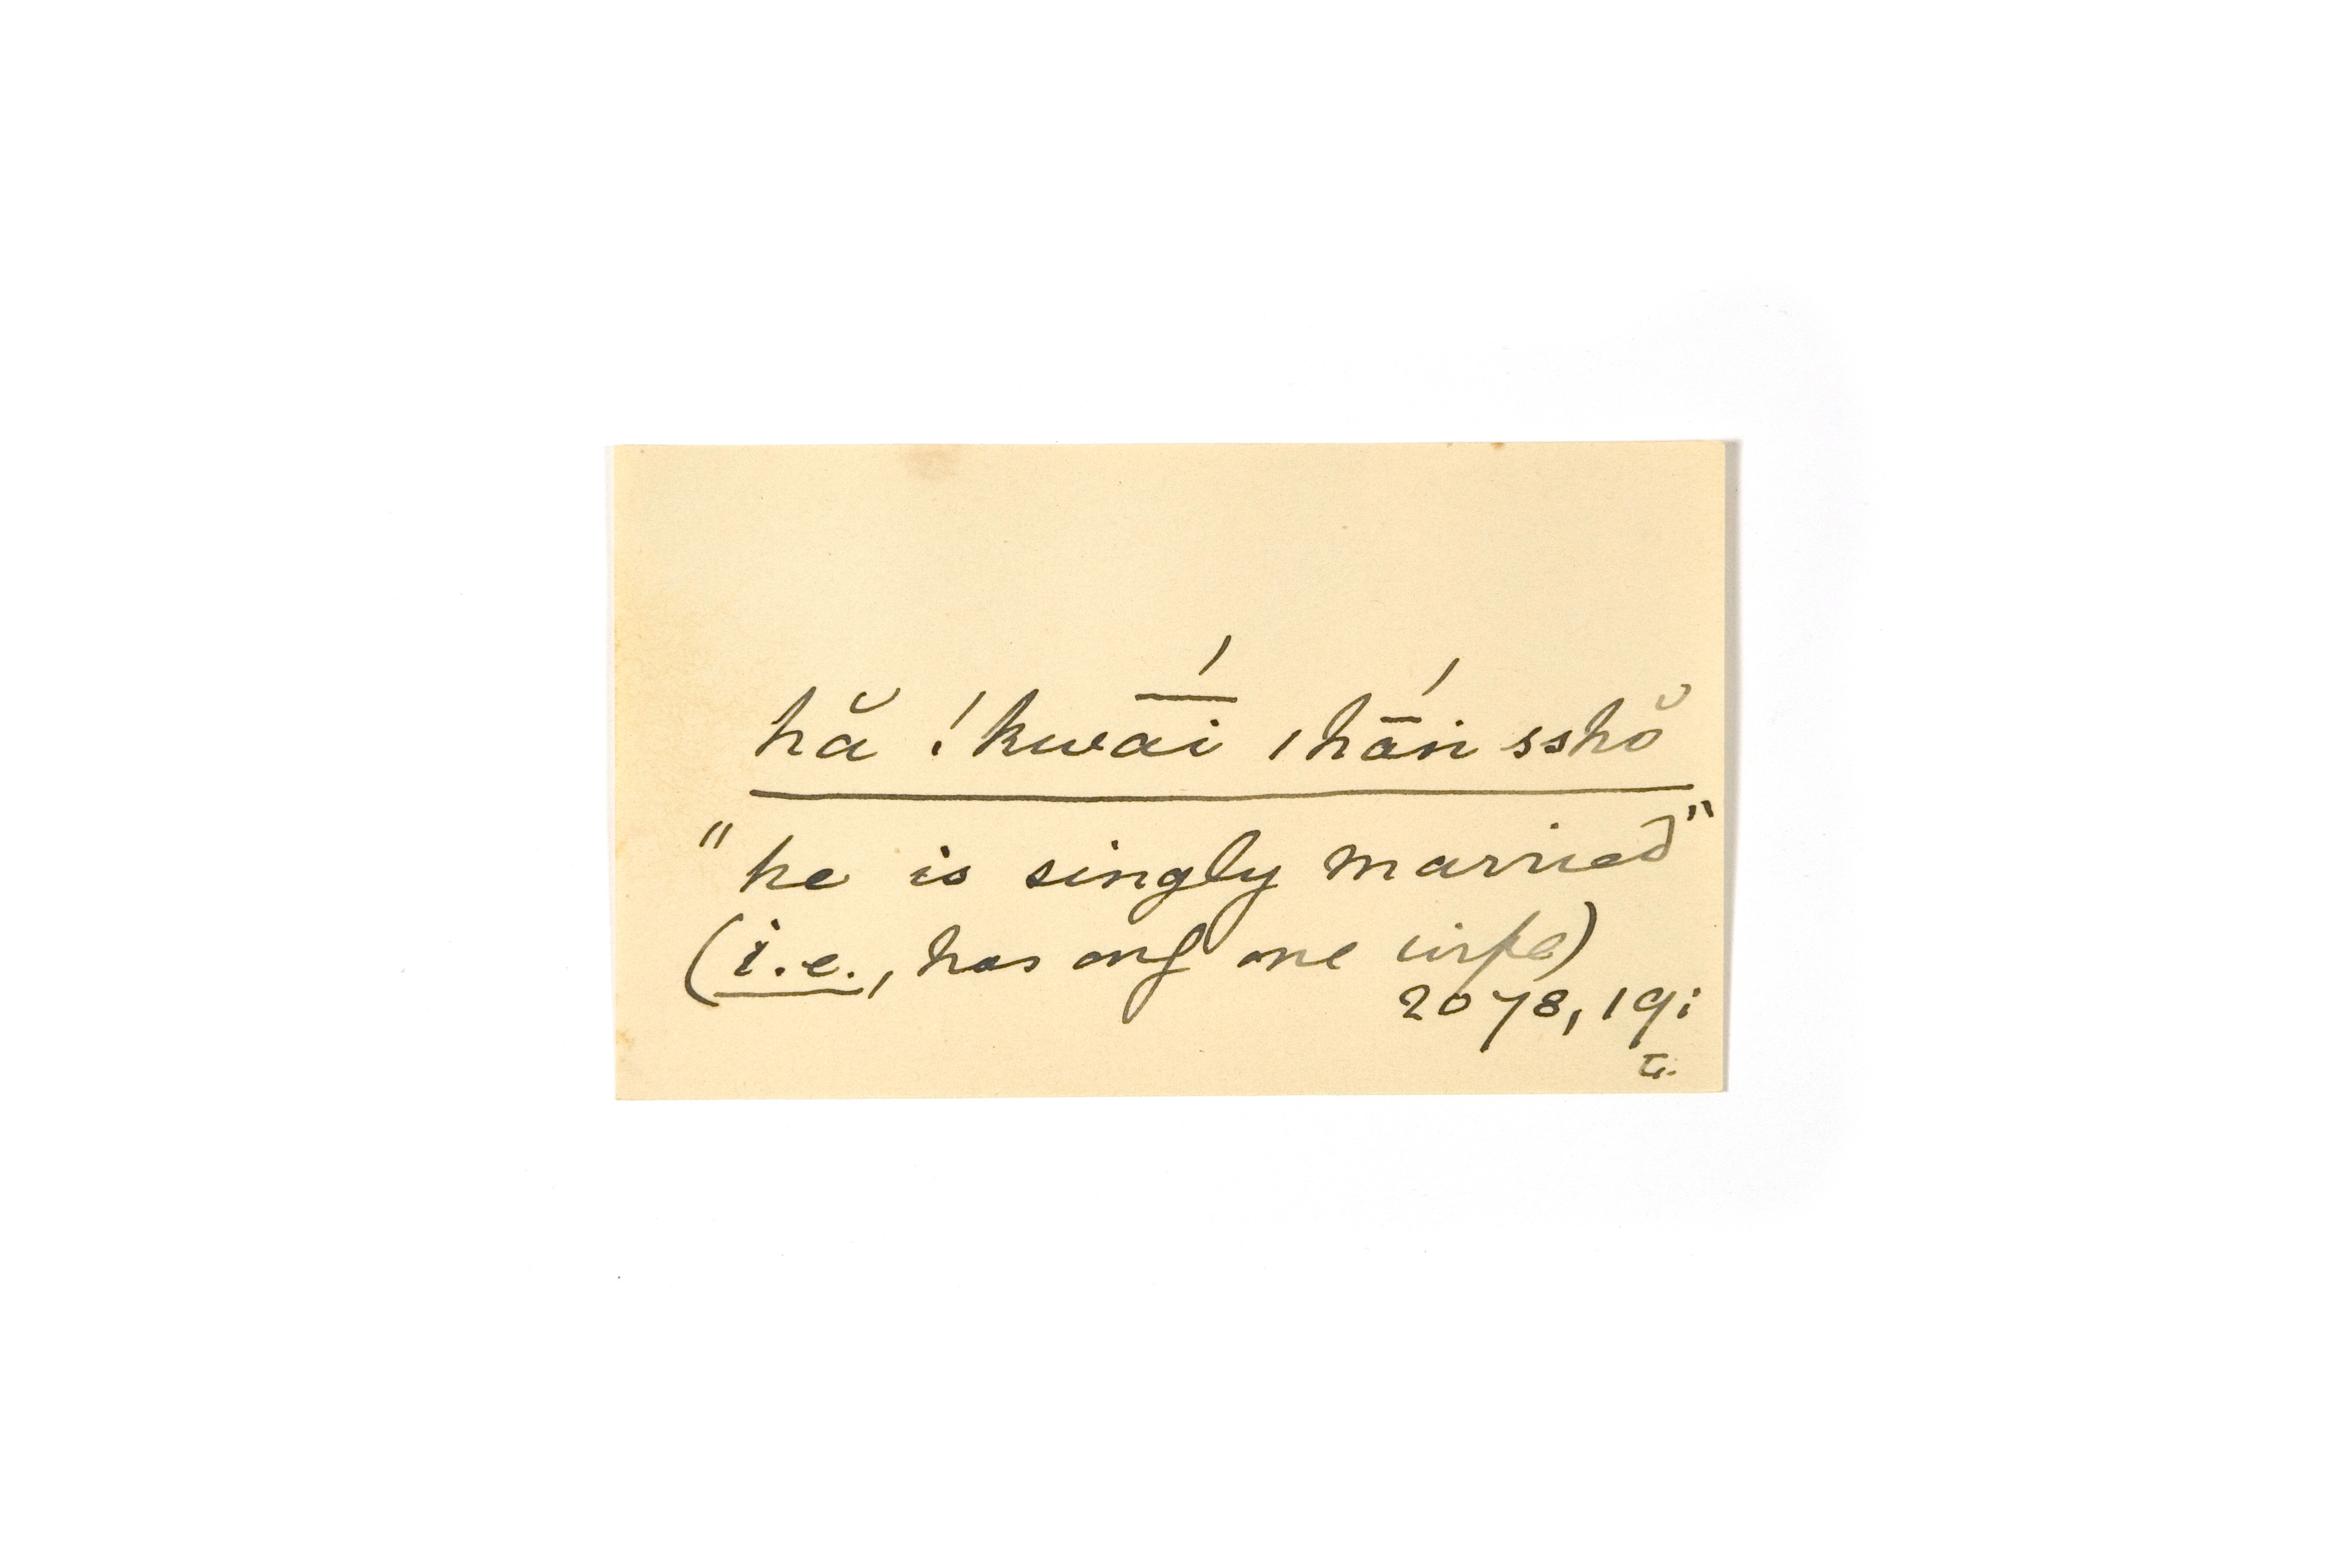 hă !kwā́i ı hā́n sshŏ
"he is singly married"
(i.e., has only one wife)
2078, 19;